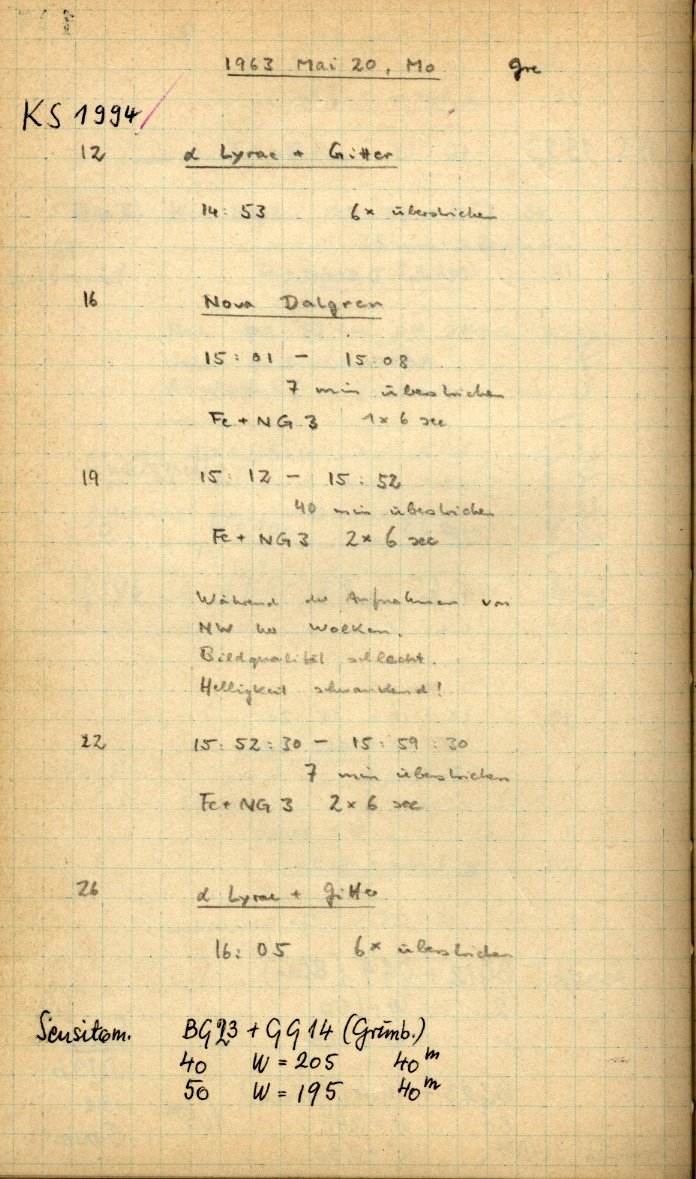 1963 Mai 20, Mo gre
KS 1994/
12 α Lyrae + Gitter
14:53 6x überstrichen
16 Nova Dalgren
15:01 – 15:08
7 min überstrichen
Fe + NG 3 1x 6 sec
19 15:12 – 15:52
40 min überstrichen
Fe + NG 3 2x 6 sec
Während der Aufnahmen von
NW her Wolken.
Bildqualität schlecht.
Helligkeit schwankend!
22 15:52:30 – 15:59:30
7 min überstrichen
Fe + NG 3 2x 6 sec
26 α Lyrae + Gitter
16:05 6x überstrichen
Sensitom. BG23 + GG14 (Grünb.)
40 W = 205 40ᵐ
50 W = 195 40ᵐ